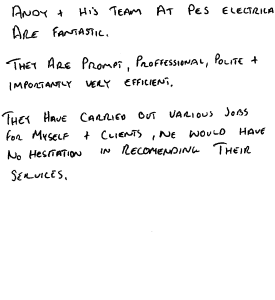 ANDY + HIS TEAM AT PES ELECTRICA
ARE FANTASTIC.
THEY ARE PROMPT, PROFFESSIONAL, POLITE +
IMPORTANTLY VERY EFFICIENT.
THEY HAVE CARRIED OUT VARIOUS JOBS
FOR MYSELF + CLIENTS, WE WOULD HAVE
NO HESITATION IN RECOMENDING THEIR
SERVICES.